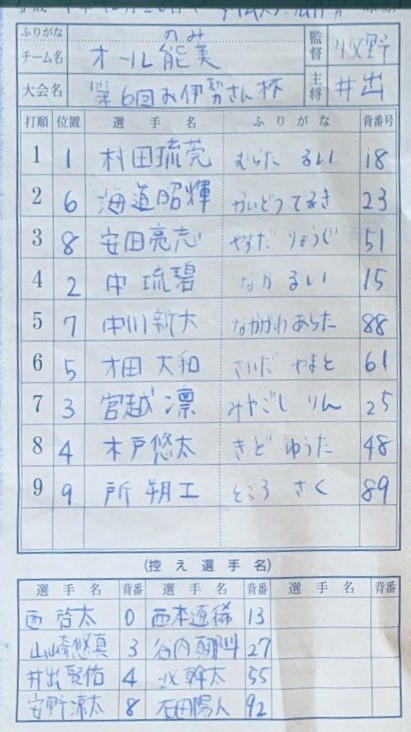 ふりがな のみ 監督 牧野
チーム名 オール能美
大会名 第6回お伊勢さん杯 主将 井出
打順 位置 選手名 ふりがな 背番号
1 1 村田琉莞 むらた るい 18
2 6 海道昭輝 かいどう てるき 23
3 8 安田亮志 やすだ りょうじ 51
4 2 中 琉碧 なか るい 15
5 7 中川新大 なかがわ あらた 88
6 5 才田 大和 さいだ やまと 61
7 3 宮越 凛 みやごし りん 25
8 4 木戸悠太 きど ゆうた 48
9 9 所 朔工 ところ さく 89
(控え選手名)
選手名 背番 選手名 背番 選手名 背番
西 啓太 0 西本 13
山崎悠真 3 谷内 27
井出賢佑 4 北 幹太 55
安野涼太 8 石田陽人 92